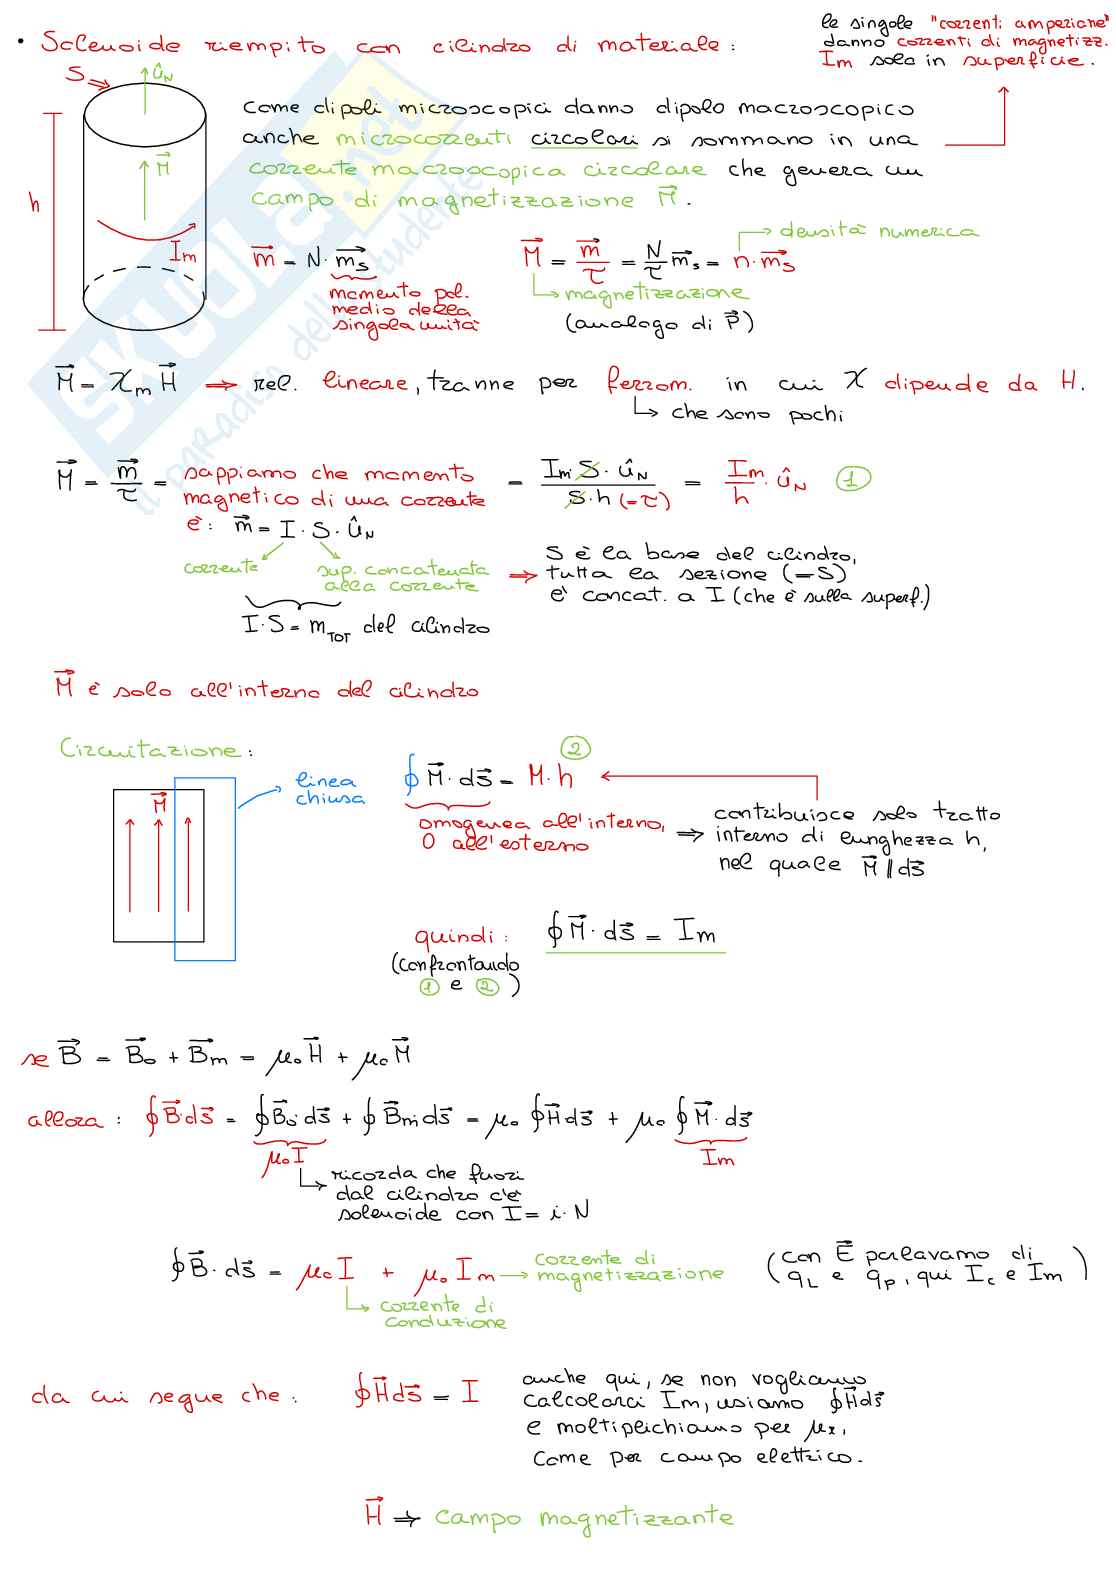 le singole "correnti amperiane"
danno correnti di magnetizz.
Im solo in superficie.
• Solenoide riempito con cilindro di materiale:
S
û_N
M⃗
h
Im
come dipoli microscopici danno dipolo macroscopico
anche microcorrenti circolari si sommano in una
corrente macroscopica circolare che genera un
campo di magnetizzazione M⃗.
m⃗ = N · m⃗_s
momento pol.
medio della
singola unità
M⃗ = m⃗/τ = N/τ m⃗_s = n · m⃗_s
densità numerica
magnetizzazione
(analogo di P⃗)
M⃗ = χ_m H⃗ ⇒ rel. lineare, tranne per ferrom. in cui χ dipende da H.
che sono pochi
M⃗ = m⃗/τ = sappiamo che momento
magnetico di una corrente
è: m⃗ = I · S · û_N
= Im S · û_N / S · h (=τ) = Im/h · û_N 1
corrente
sup. concatenata
alla corrente
I · S = m_TOT del cilindro
⇒ S è la base del cilindro,
tutta la sezione (=S)
è concat. a I (che è sulla superf.)
M⃗ è solo all'interno del cilindro
Circuitazione:
M⃗
linea
chiusa
2
∮ M⃗ · ds⃗ = M · h
omogenea all'interno,
0 all'esterno
⇒ contribuisce solo tratto
interno di lunghezza h,
nel quale M⃗ ∥ ds⃗
quindi: ∮ M⃗ · ds⃗ = Im
(confrontando
1 e 2)
se B⃗ = B⃗_o + B⃗_m = μ_o H⃗ + μ_o M⃗
allora: ∮ B⃗·ds⃗ = ∮ B⃗_o · ds⃗ + ∮ B⃗_m · ds⃗ = μ_o ∮ H⃗ ds⃗ + μ_o ∮ M⃗ · ds⃗
μ_o I
Im
ricorda che fuori
dal cilindro c'è
solenoide con I = i · N
∮ B⃗ · ds⃗ = μ_o I + μ_o Im → corrente di
magnetizzazione
corrente di
conduzione
(con E⃗ parlavamo di
q_L e q_p, qui I_c e Im)
da cui segue che: ∮ H⃗ ds⃗ = I
anche qui, se non vogliamo
calcolarci Im, usiamo ∮ H⃗ ds⃗
e moltiplichiamo per μ_r,
come per campo elettrico.
H⃗ ⇒ campo magnetizzante
SKUOLA.net
il paradiso dello studente